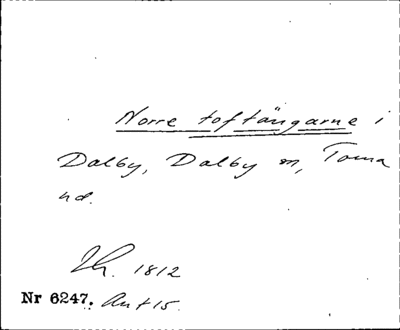 Norre toftängarne i
Dalby, Dalby sn, Torna
hd.
Lh. 1812
Nr 6247. Ant 15.